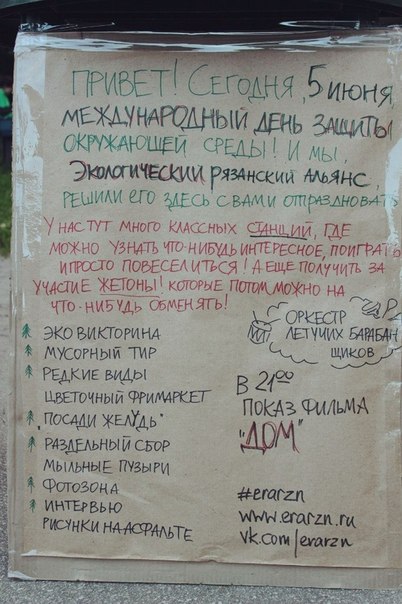 ПРИВЕТ! СЕГОДНЯ, 5 ИЮНЯ,
МЕЖДУНАРОДНЫЙ ДЕНЬ ЗАЩИТЫ
ОКРУЖАЮЩЕЙ СРЕДЫ! И МЫ,
ЭКОЛОГИЧЕСКИЙ РЯЗАНСКИЙ АЛЬЯНС,
РЕШИЛИ ЕГО ЗДЕСЬ С ВАМИ ОТПРАЗДНОВАТЬ
У НАС ТУТ МНОГО КЛАССНЫХ СТАНЦИЙ, ГДЕ
МОЖНО УЗНАТЬ ЧТО-НИБУДЬ ИНТЕРЕСНОЕ, ПОИГРАТЬ
И ПРОСТО ПОВЕСЕЛИТЬСЯ! А ЕЩЕ ПОЛУЧИТЬ ЗА
УЧАСТИЕ ЖЕТОНЫ! КОТОРЫЕ ПОТОМ МОЖНО НА
ЧТО-НИБУДЬ ОБМЕНЯТЬ!
ЭКО ВИКТОРИНА
МУСОРНЫЙ ТИР
РЕДКИЕ ВИДЫ
ЦВЕТОЧНЫЙ ФРИМАРКЕТ
"ПОСАДИ ЖЕЛУДЬ"
РАЗДЕЛЬНЫЙ СБОР
МЫЛЬНЫЕ ПУЗЫРИ
ФОТОЗОНА
ИНТЕРВЬЮ
РИСУНКИ НА АСФАЛЬТЕ
ОРКЕСТР
ЛЕТУЧИХ БАРАБАН
ЩИКОВ
В 21:00
ПОКАЗ ФИЛЬМА
"ДОМ"
#erarzn
www.erarzn.ru
vk.com/erarzn